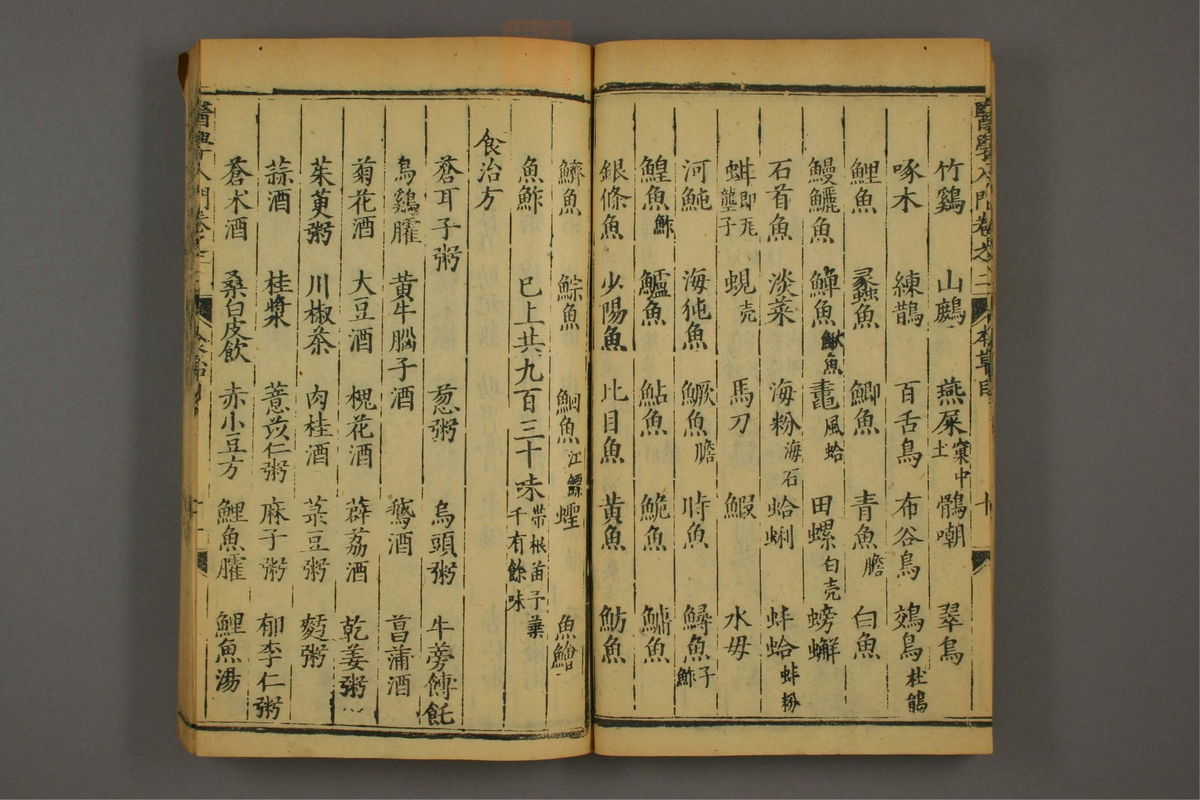 竹鷄 山鷓 燕屎窠中土 鶻嘲 翠鳥
啄木 練鵲 百舌鳥 布谷鳥 鴂鳥杜鵑
鯉魚 蠡魚 鯽魚 青魚膽 白魚
鰻鱺魚 鱓魚鰍魚 鼃風蛤 田螺白壳 螃蠏
石首魚 淡菜 海粉海石 蛤蜊 蚌蛤蚌粉
蚶即瓦壟子 蜆壳 馬刀 鰕 水母
河魨 海㹠魚 鱖魚膽 時魚 鱘魚子鮓
鰉魚鮓 鱸魚 鮎魚 鮠魚 鱅魚
銀條魚 少陽魚 比目魚 黃魚 魴魚
鱭魚 鯮魚 鮰魚江鰾 蟶 魚鱠
魚鮓 已上共九百三十味帶根苗子葉千有餘味
食治方
蒼耳子粥 葱粥 烏頭粥 牛蒡餺飥
烏鷄臛 黃牛腦子酒 鵞酒 菖蒲酒
菊花酒 大豆酒 槐花酒 薜荔酒 乾姜粥
茱萸粥 川椒茶 肉桂酒 菉豆粥 麪粥
蒜酒 桂漿 薏苡仁粥 麻子粥 郁李仁粥
蒼朮酒 桑白皮飲 赤小豆方 鯉魚臛 鯉魚湯